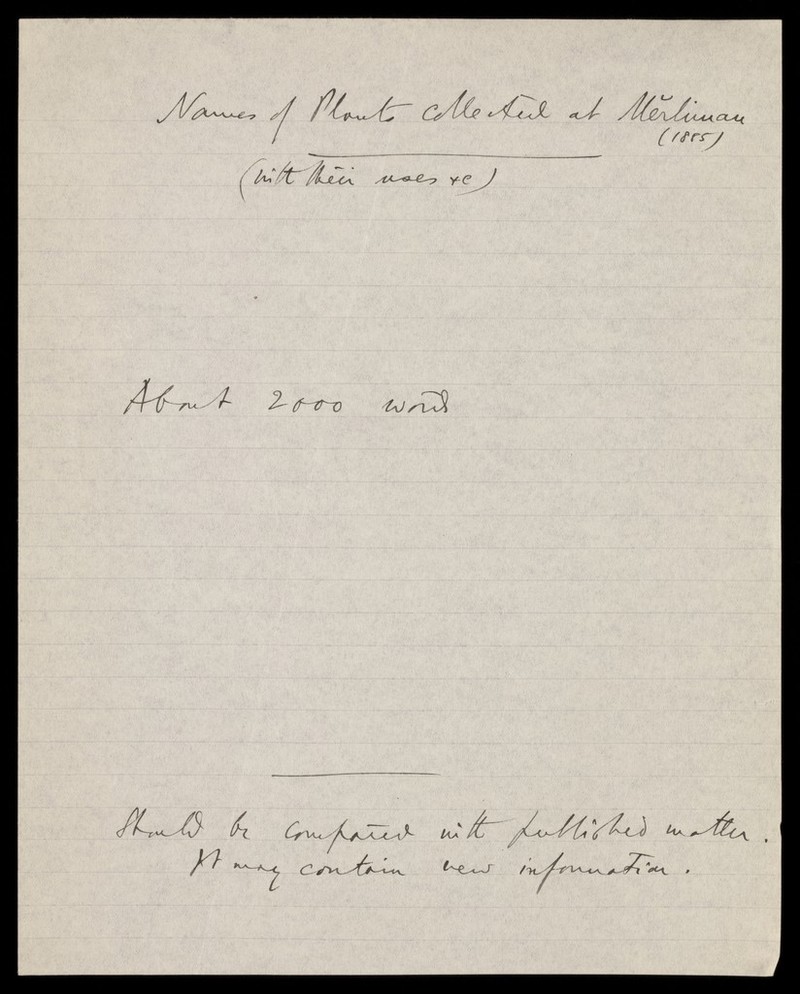 Names of Plants collected at Mĕrliman
(1885)
(with their uses &c)
About 2000 words
Should be compared with published matter.
It may contain new information.